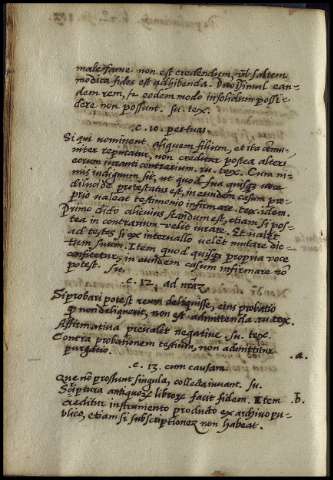 malefame non est credendum, vel saltem
modica fides est adhibenda. Duo simul ean-
dem rem, & eodem modo insolidum possi-
dere non possunt. su. tex.
.c. 10. per tuas.
Si qui nominent aliquem filium, et ita comu-
niter reputatur, non creditur postea alteri
eorum iuranti contrarium. su. tex. Cum ni-
mis indignum sit, ut quod sua quisque voce
dilucide protestatus est, in eundem casum pro-
prio valeat testimonio infirmare. tex. idem.
Primo dicto alicuius standum est, etiam si pos-
tea in contrarium velit iurare. Et valet
ad testes si ex intervallo velet mutare dic-
tum suum. Item quod quisque propria voce
confitetur, in eundem casum infirmare non
potest. su.
.c. 12. ad nrã
Si probari potest reum deliquisse, eius probatio
quod non deliquerit, non est admittenda. su. tex.
Affirmativa prevalet negative su. tex.
Contra probationem testium, non admittitur
purgatio. .a.
.c. 13. cum causam.
Que nõ prosunt singula, collecta iuvant. su.
Scriptura antiquorum librorum facit fidem. Item .b.
creditur instrumento producto ex archivo pu-
blico, etiam si subscriptionem non habeat.